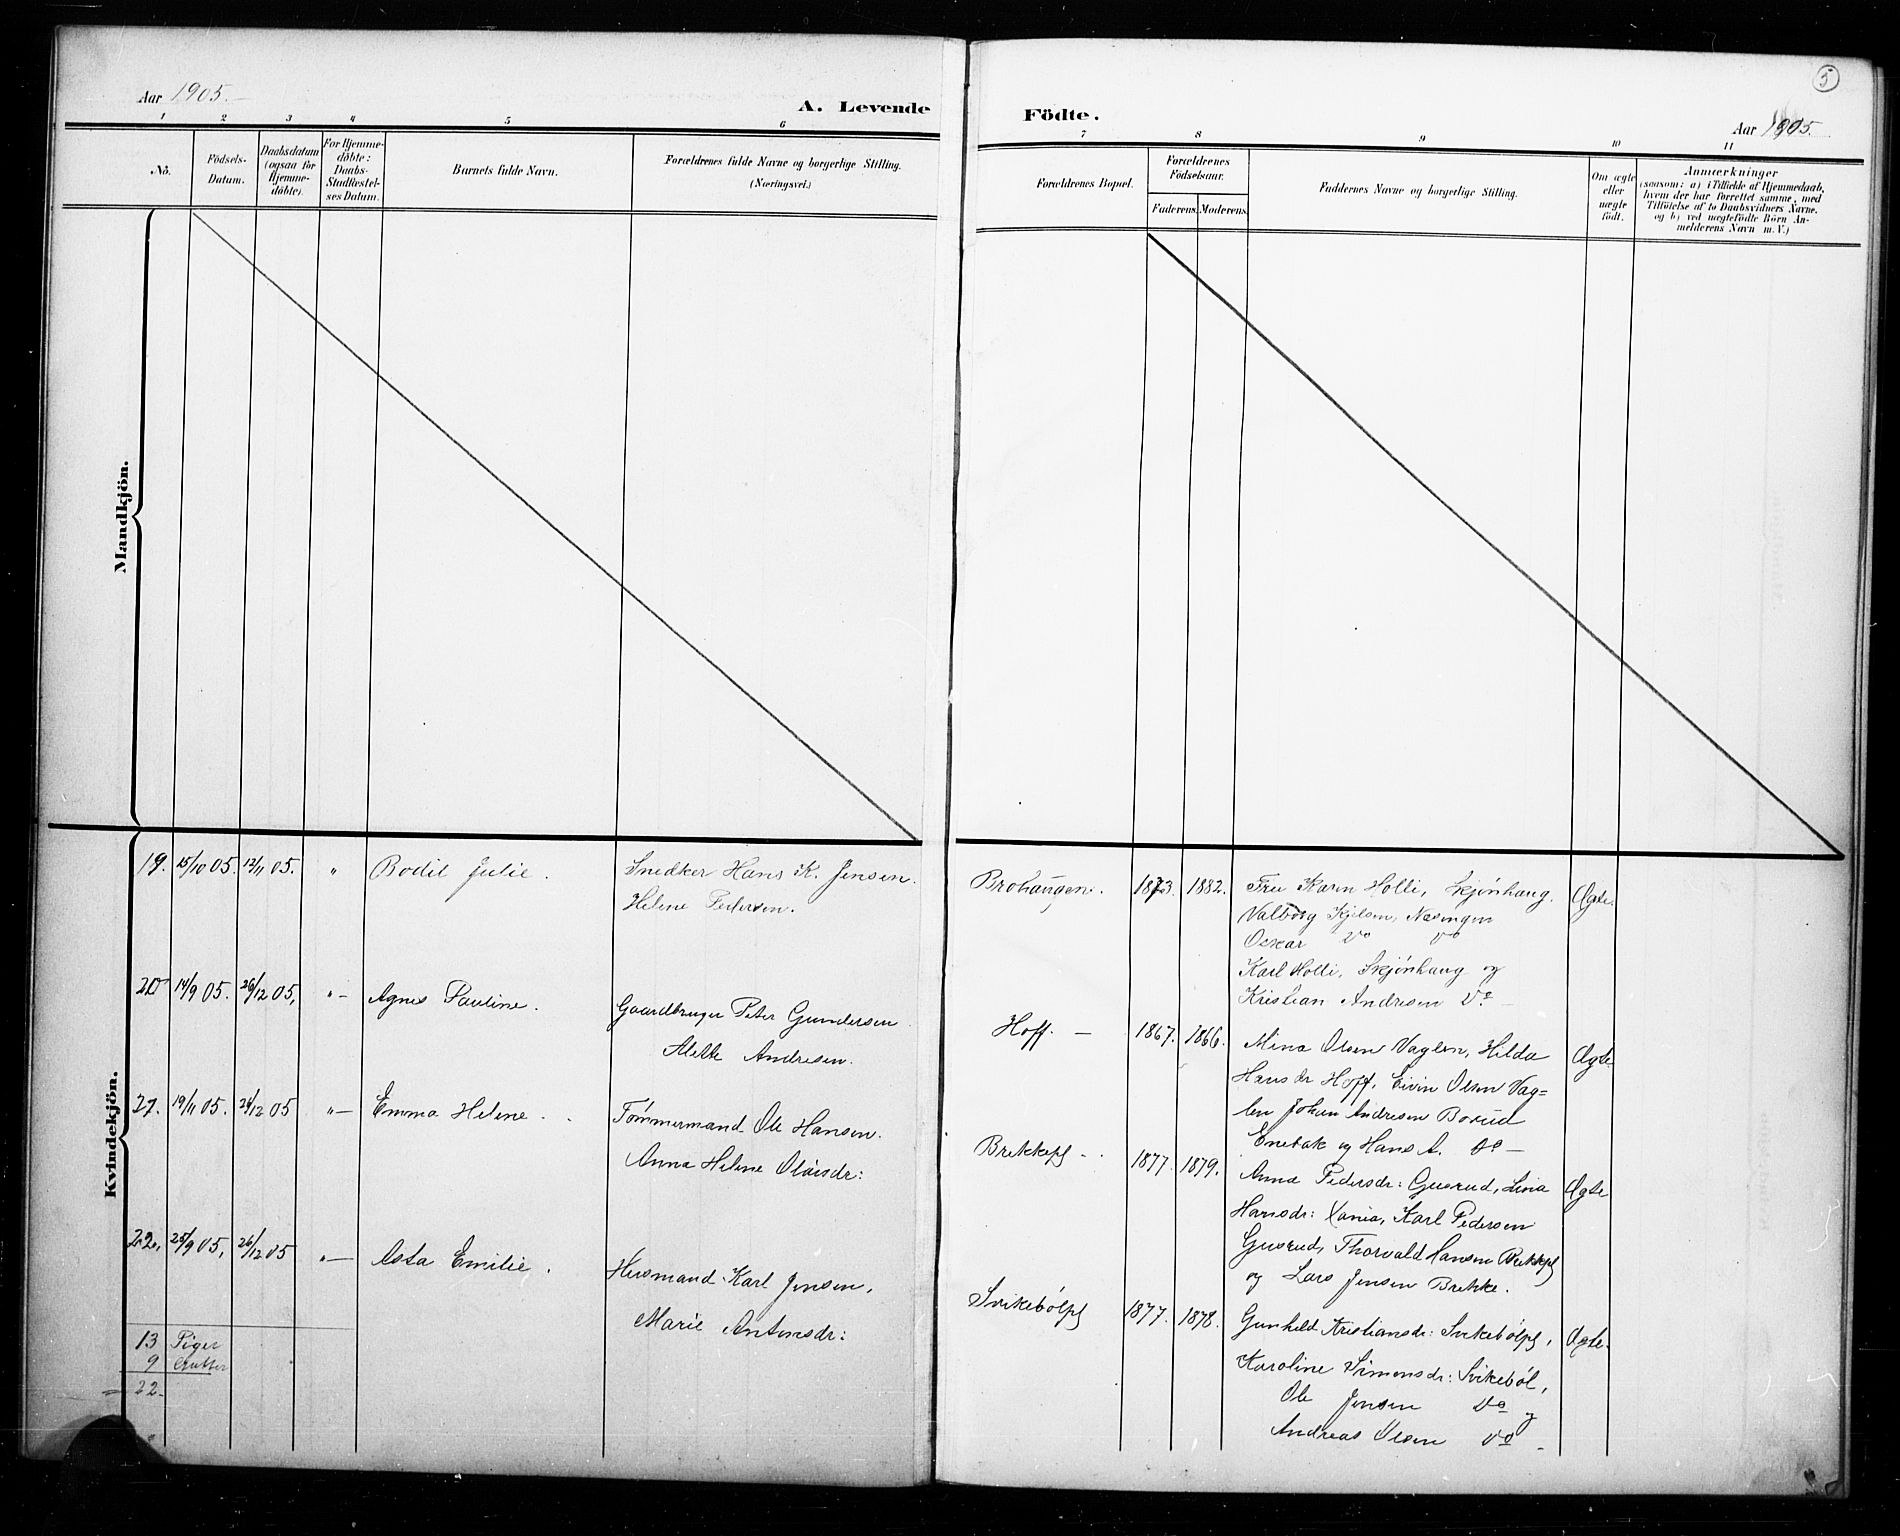 Aar 1905.
A. Levende
1 2 3 4 5 6
No.
Födsels-
Datum.
Daabsdatum
(ogsaa for
Hjemme-
döbte).
For Hjemme-
döbte:
Daabs-
Stadfæstel-
ses Datum.
Barnets fulde Navn.
Forældrenes fulde Navne og borgerlige Stilling.
(Næringsvei.)
Mandkjön.
Kvindekjön.
19. 15/10 05. 12/11 05. " Bodil Julie. Snedker Hans K. Jensen.
Helene Pedersen.
20 14/9 05. 26/12 05, "– Agnes Pauline. Gaardbruger Peter Gundersen.
Alette Andresen.
21. 19/11 05. 26/12 05 "– Emma Helene. Tømmermand Ole Hansen.
Anna Helene Olaisdr:
22, 25/9 05, 26/12 05 "– Asta Emilie. Husmand Karl Jensen,
Marie Antonsdr:
13 Piger
9 Gutter
22.
5
Födte.
Aar 1905.
7 8 9 10 11
Forældrenes Bopæl.
Forældrenes
Födselsaar.
Faderens. Moderens.
Faddernes Navne og borgerlige Stilling.
Om ægte
eller
uægte
födt.
Anmærkninger
(saasom: a) i Tilfælde af Hjemmedaab,
hvem der har forrettet samme, med
Tilföielse af to Daabsvidners Navne.
og b) ved uægtefödte Börn An-
melderens Navn m. V.)
Brohaugen. 1873. 1882. Fru Karen Holli, Skjønhaug. Ægte.
Valborg Kjelsen, Næsengen
Oscar Do Do
Karl Holli, Skjønhaug og
Kristian Andresen Do
Hoff. – 1867. 1866. Mina Olsen Vaglen, Hilda Ægte
Hansdr Hoff, Eivin Olsen Vag=
len Johan Andresen Borud
Enebak og Hans A. Do –
Brekkepl – 1877. 1879. Anna Pedersdr: Gusrud, Lina Ægte
Hansdr: Xania, Karl Pedersen
Gusrud, Thorvald Hansen Brekkepl
og Lars Jensen Brekke.
Svikebølpl 1877. 1878. Gunhild Kristiansdr: Svikebølpl, Ægte.
Karoline Simensdr: Svikebøl,
Ole Jensen Do og
Andreas Olsen Do –